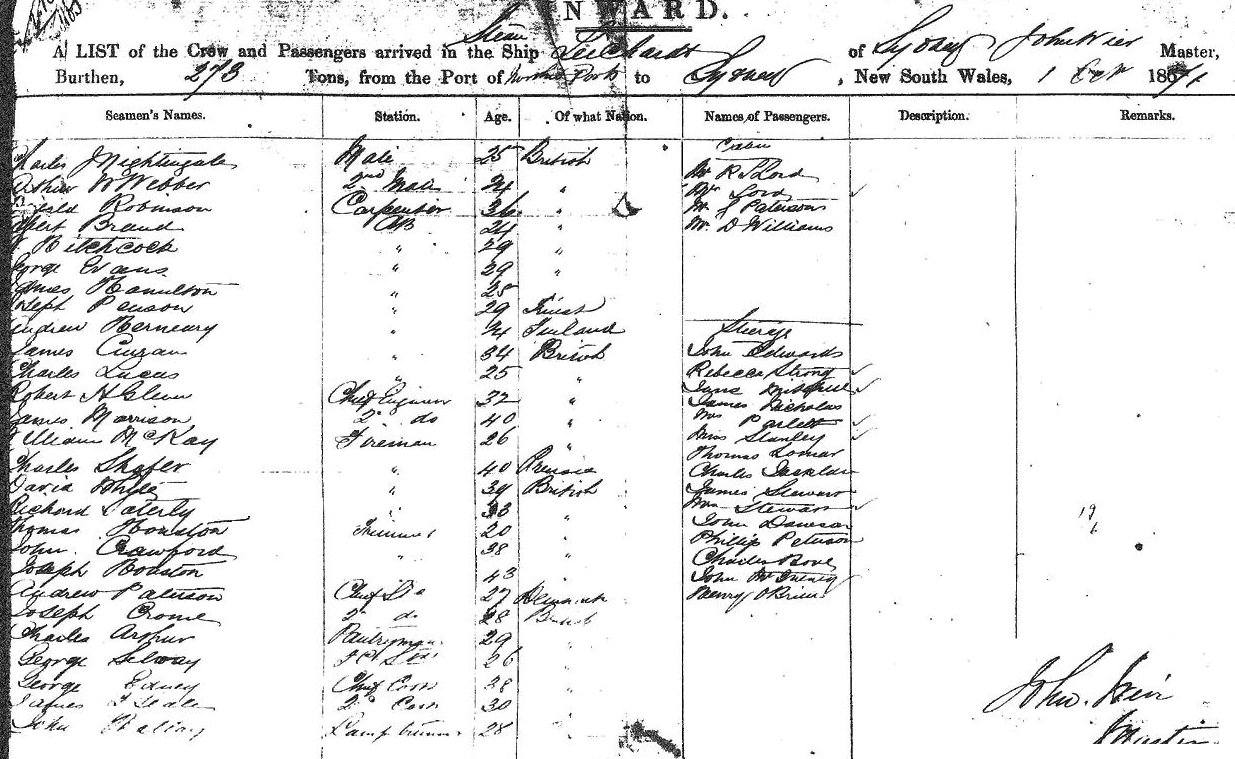 NWARD.
A LIST of the Crew and Passengers arrived in the Ship Steam Leichardt of Sydney John Weir Master,
Burthen, 273 Tons, from the Port of to Sydney, New South Wales, 1 187
Seamen's Names. Station. Age. Of what Nation. Names of Passengers. Description. Remarks.
Charles J Nightingale Mate 25 British Cabin
Arthur W Webber 2nd Mate 24 " Mr R S Lord
Robinson Carpenter 36 " Mrs Lord
Albert Brand AB 24 " Mr J Paterson
Hitchcock " 29 " Mr D Williams
George Evans " 29 "
James Hamilton " 28
Joseph Penson " 29
Andrew " 24 Finland Steerage
James " 34 British John Edwards
Charles Lucas " 25 " Rebecca Strong
Robert H Glenn Chief Engineer 32 " Jane Mitchell
James Morrison 2nd do 40 " James Nicholas
William McKay Fireman 26 " Mrs Parlett
Miss Stanley
Charles Shafer " 40 Prussia Thomas Lomar
David White " 39 British Charles
Richard " 33 " James Stewart
Thomas Houston Trimmer 20 " Mrs Stewart
John Crawford " 38 " John Dawson
Joseph Houston 43 " Phillip Peterson
Andrew Paterson Chief 27 Denmark Charles Bove
Joseph Crome 2nd do 28 British John
Charles Arthur Pantryman 29 " Henry O'Brien
George Selway 26 "
George Edney Chief Cook 38 "
James 2nd Cook 30 "
John Lamp trimmer 28 "
19
6
John Weir
Master